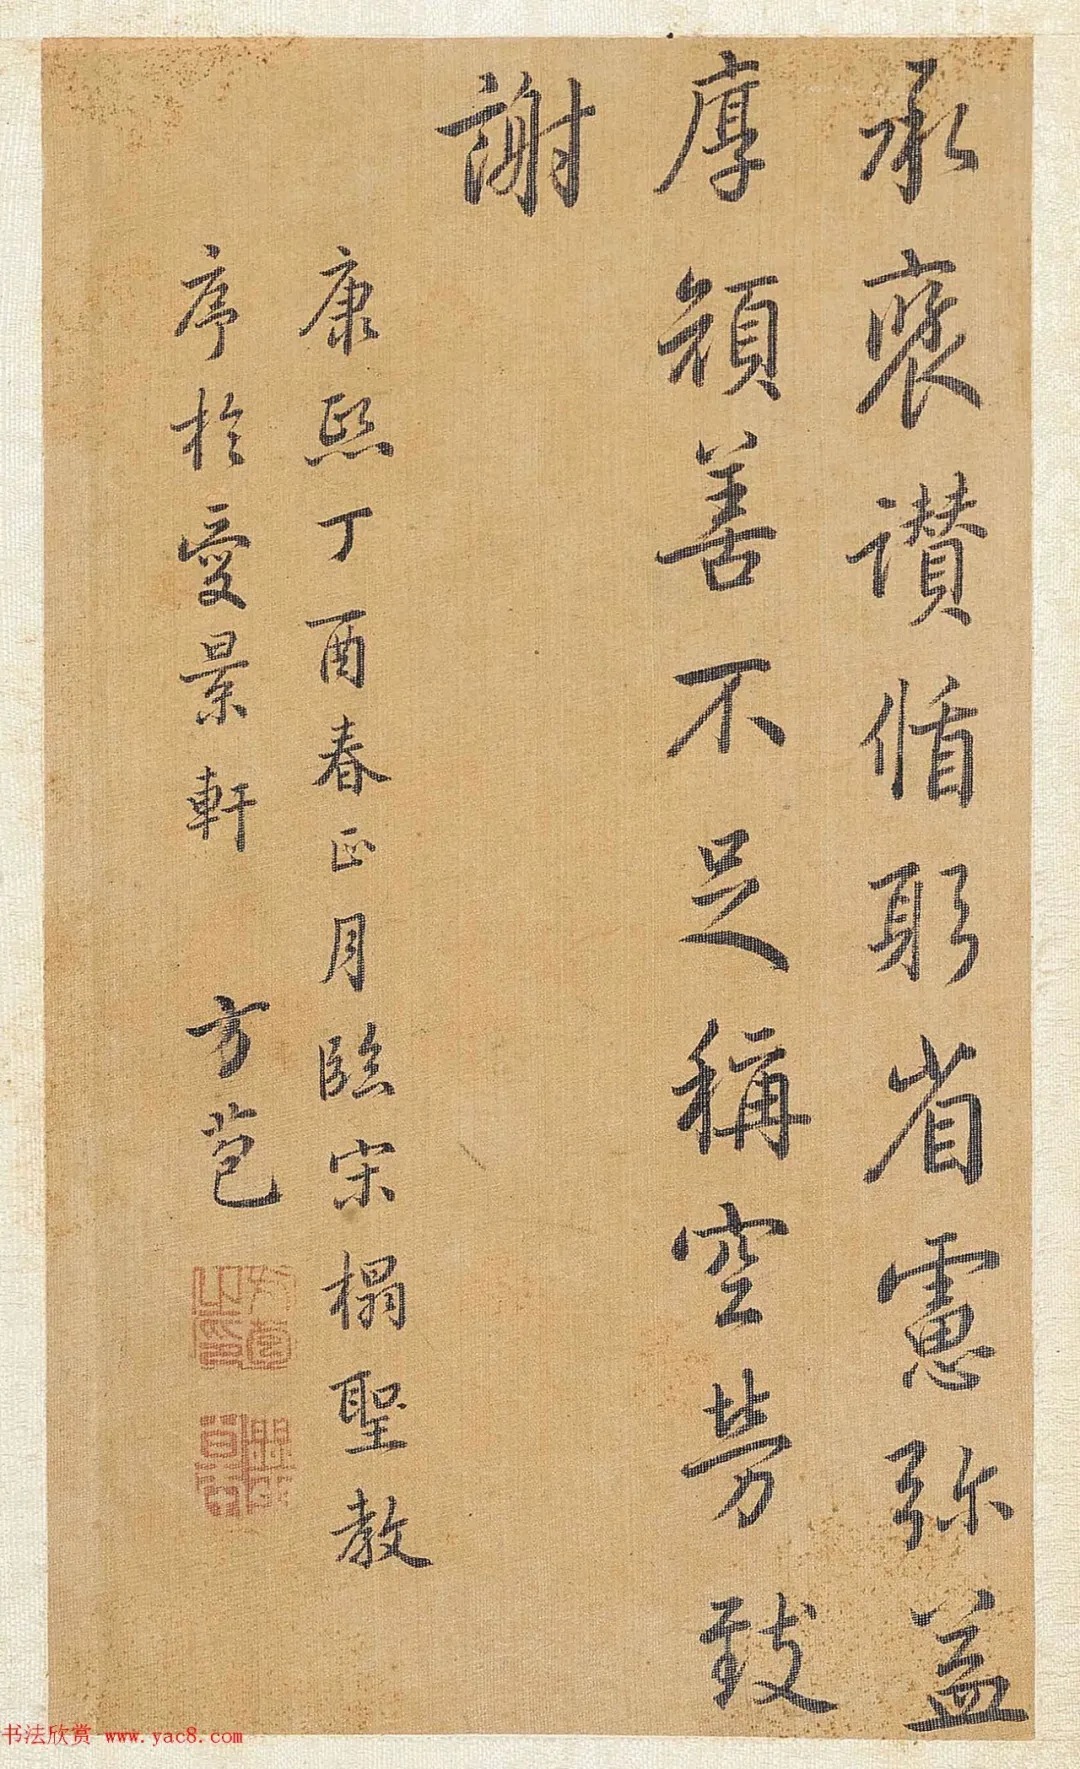 承褒讃循躬省慮弥益
厚顔善不足稱空勞致
謝
康熙丁酉春正月臨宋榻聖教
序於愛景軒 方苞
书法欣赏 www.yac8.com